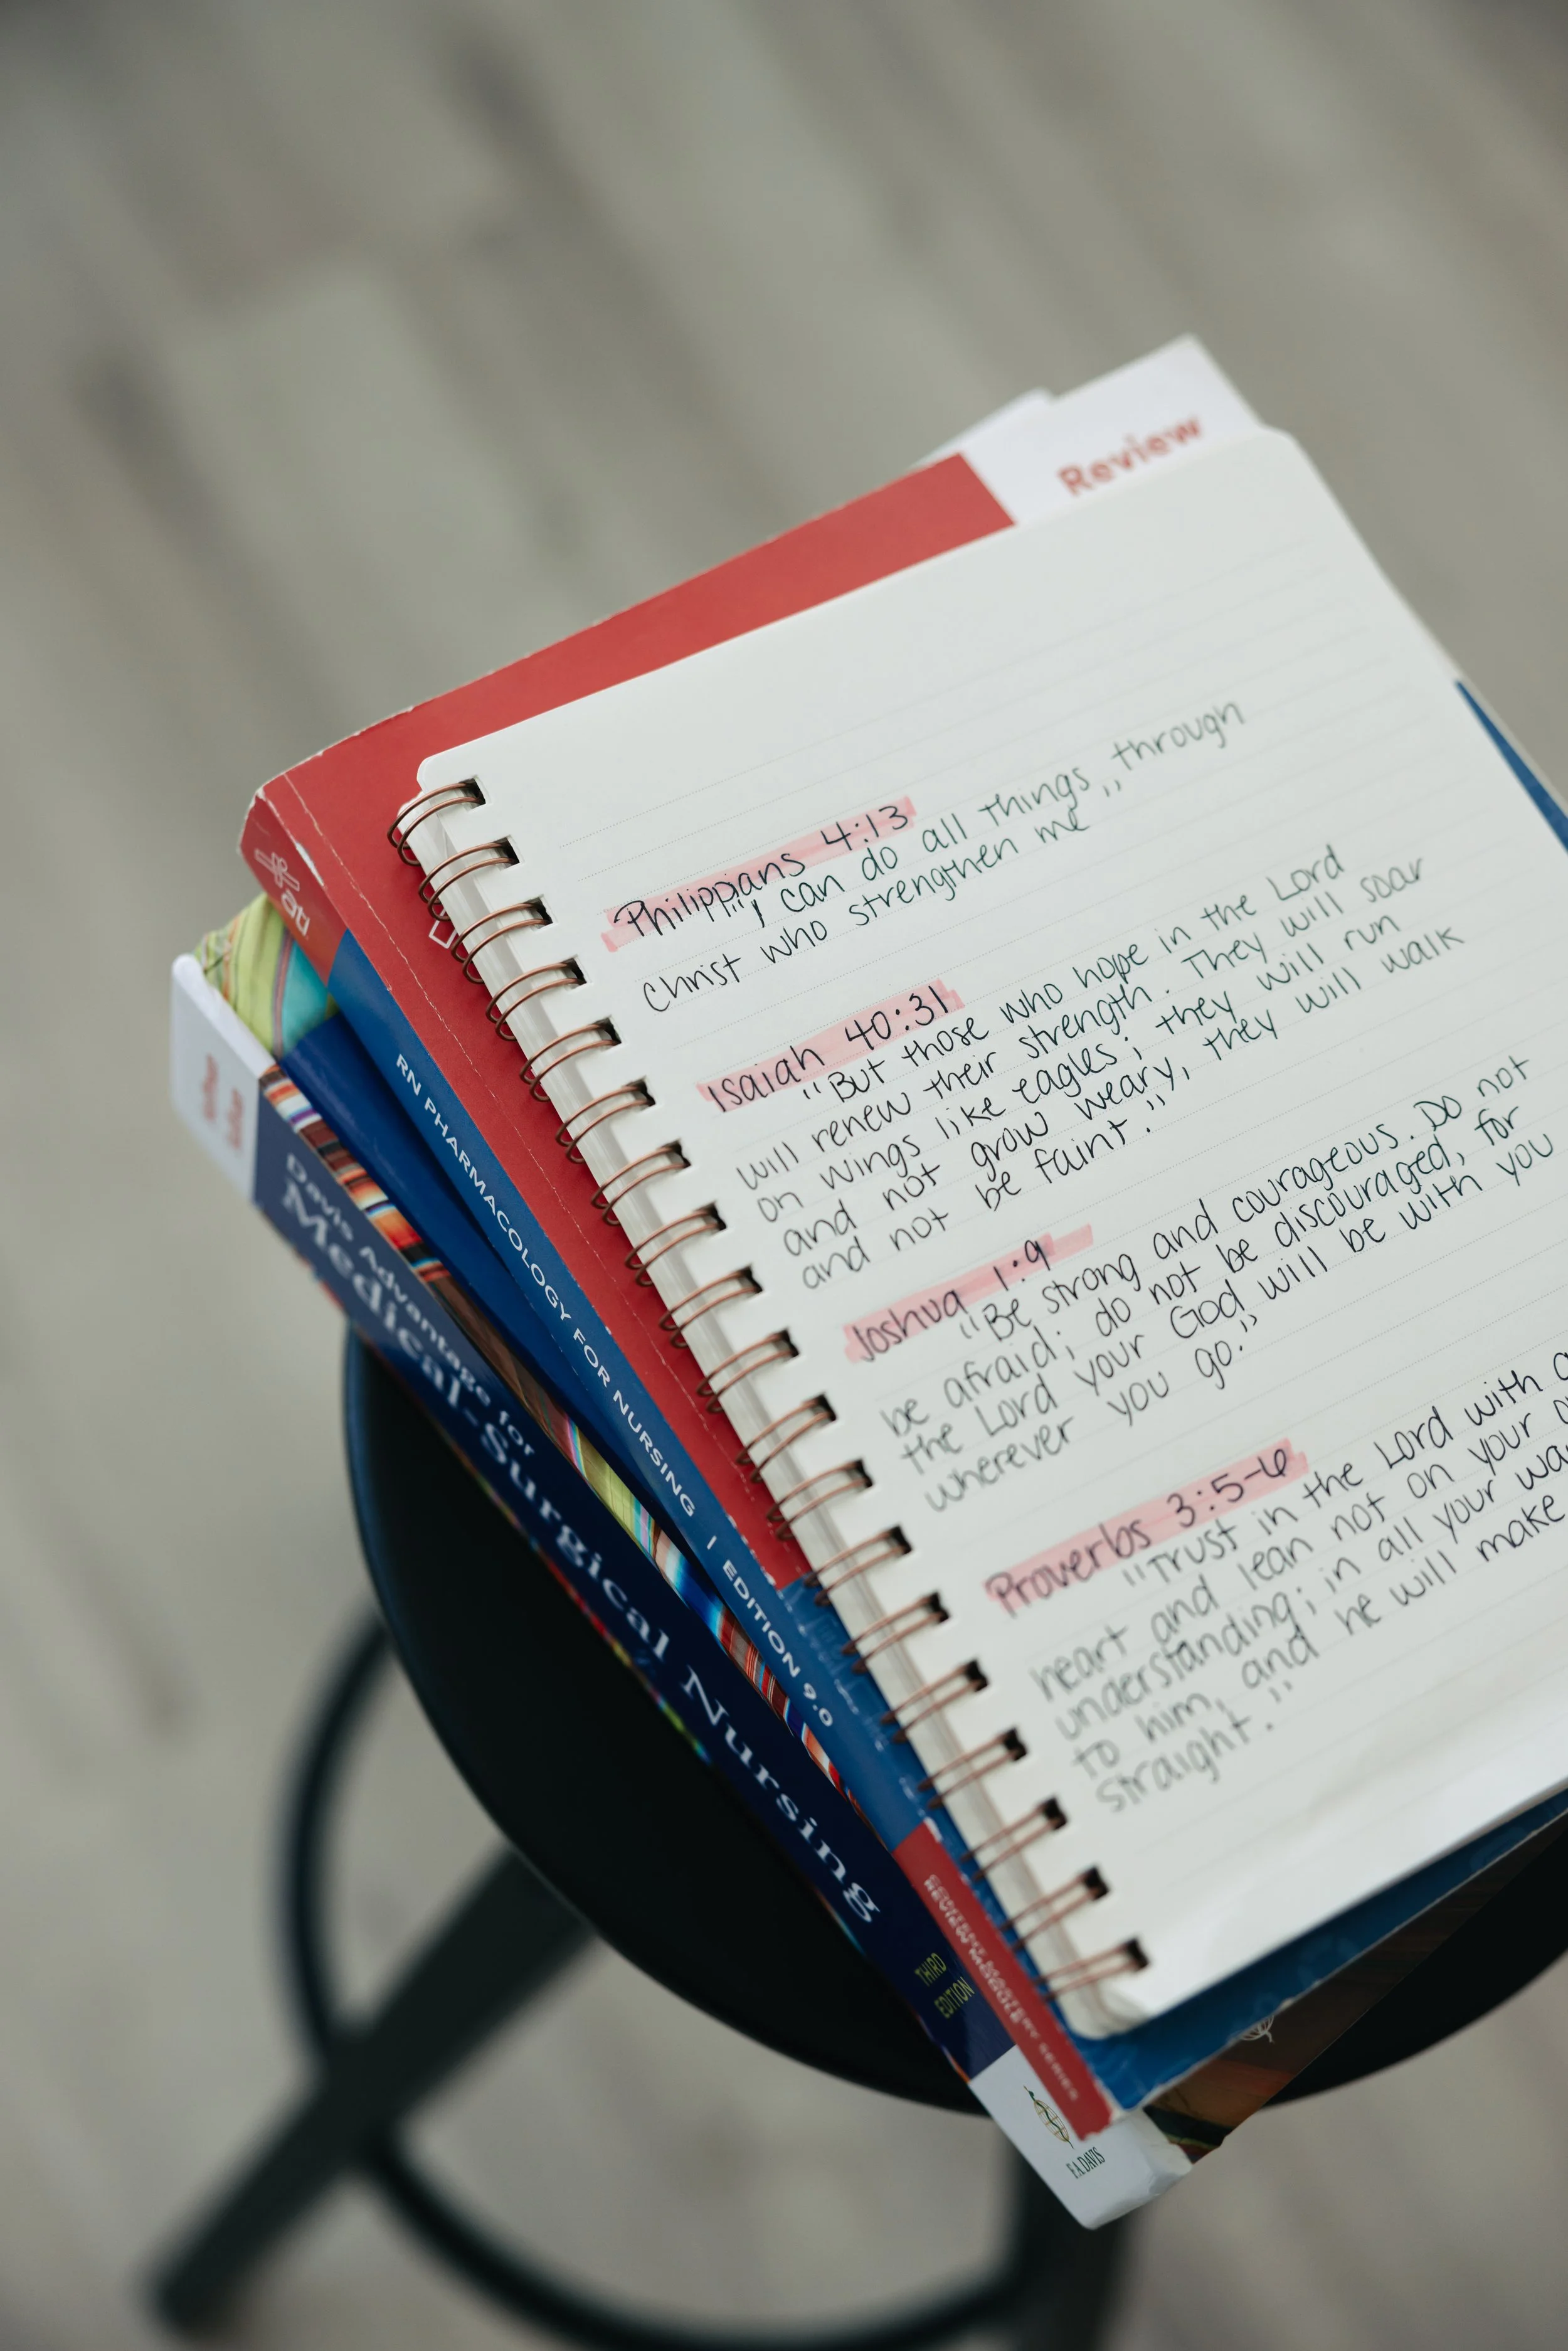 Review
Philippians 4:13
"I can do all things through
Christ who strengthen me"
Isaiah 40:31
"But those who hope in the Lord
will renew their strength. They will soar
on wings like eagles; they will run
and not grow weary, they will walk
and not be faint."
Joshua 1:9
"Be strong and courageous. Do not
be afraid; do not be discouraged, for
the Lord your God will be with you
wherever you go."
Proverbs 3:5-6
"Trust in the Lord with
heart and lean not on your
understanding; in all your
to him, and he will make
straight."
ati
RN PHARMACOLOGY FOR NURSING | EDITION 9.0
CONTENT MASTERY SERIES
REVIEW MODULE
Davis Advantage for
Medical-Surgical Nursing
THIRD
EDITION
F.A. DAVIS